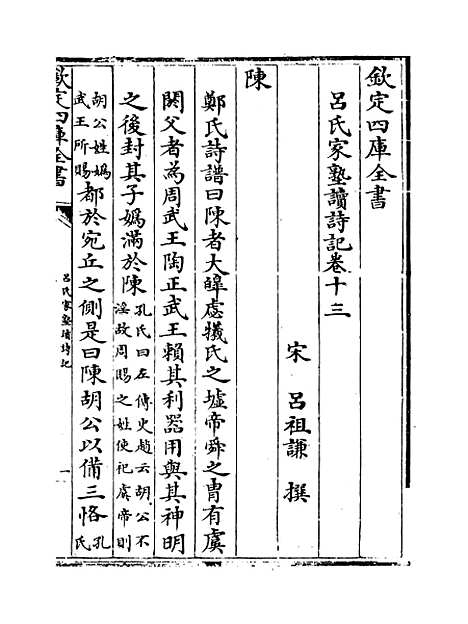 欽定四庫全書
呂氏家塾讀詩記卷十三
宋 呂祖謙 撰
陳
鄭氏詩譜曰陳者大皥虙犧氏之墟帝舜之胄有虞
閼父者為周武王陶正武王賴其利器用與其神明
之後封其子媯滿於陳孔氏曰左傳史趙云胡公不
淫故周賜之姓使祀虞帝則
胡公姓媯
武王所賜都於宛丘之側是曰陳胡公以備三恪孔
氏
欽定四庫全書
呂氏家塾讀詩記
一